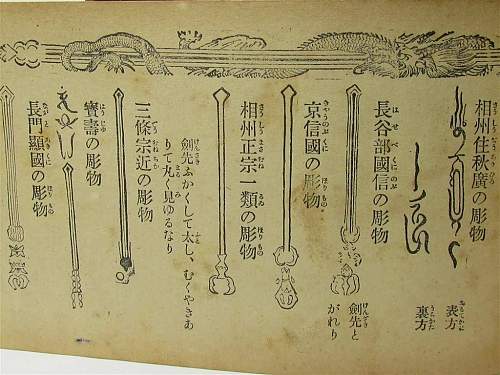 相州住秋廣の彫物
表方
裏方
長谷部國信の彫物
劍先と
がれり
京信國の彫物
相州正宗一類の彫物
劍先ふかくして太し、むくやきあ
りて丸く見ゆるなり
三條宗近の彫物
寶壽の彫物
長門顯國の彫物